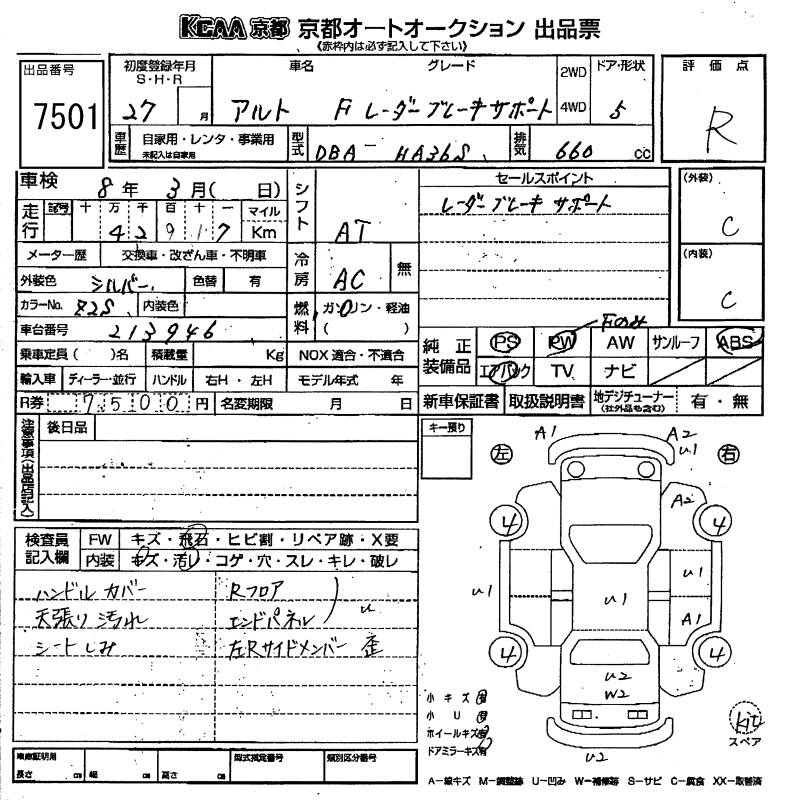 KCAA 京都 京都オートオークション 出品票
《赤枠内は必ず記入して下さい》
出品番号
7501
初度登録年月
S・H・R
27 月
車名
アルト
グレード
F レーダーブレーキサポート
2WD
4WD
ドア・形状
5
評価点
R
車歴
自家用・レンタ・事業用
未記入は自家用
型式
DBA- HA36S
排気
660 cc
車検 8年 3月( 日)
走行
記号 十 万 千 百 十 一 マイル
4 2 9 1 7 Km
メーター歴 交換車・改ざん車・不明車
外装色 シルバー 色替 有
カラーNo. Z2S 内装色
車台番号 213946
乗車定員( )名 積載量 Kg NOX 適合・不適合
輸入車 ディーラー・並行 ハンドル 右H・左H モデル年式 年
R券 7500円 名変期限 月 日
シフト AT
冷房 AC 無
燃料 ガソリン・軽油
( )
セールスポイント
レーダーブレーキサポート
(外装)
C
(内装)
C
Fのみ
純正装備品 PS PW AW サンルーフ ABS
エアバック TV ナビ
新車保証書 取扱説明書 地デジチューナー 有・無
(社外品も含む)
注意事項(出品店記入)
後日品
キー預り
検査員記入欄
FW キズ・飛石・ヒビ割・リペア跡・X要
内装 キズ・汚レ・コゲ・穴・スレ・キレ・破レ
ハンドルカバー
天張り汚れ
シートしみ
Rフロア
エンドパネル
u
左Rサイドメンバー 歪
左 右
A1
A2
u1
A2
4 4
u1
u1
u1
A1
4 4
u2
W2
u2
小キズ有
小U有
ホイールキズ有
ドアミラーキズ有
kit
スペア
車庫証明用
長さ cm 幅 cm 高さ cm
型式指定番号
類別区分番号
A-線キズ M-調整跡 U-凹み W-補修跡 S-サビ C-腐食 XX-取替済